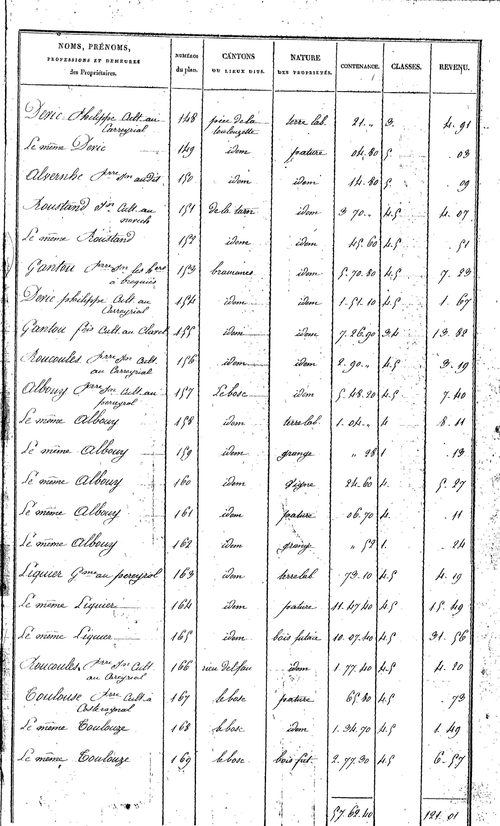 NOMS, PRÉNOMS, PROFESSIONS ET DEMEURES des Propriétaires. NUMÉROS du plan. CANTONS OU LIEUX DITS. NATURE DES PROPRIÉTÉS. CONTENANCE. CLASSES. REVENU.
Devic Philippe Cult. au Carreyrial 148 pièce de la toulouzette terre lab. 21. " 3. 4. 91
Le même Devic 149 idem pature 04. 80 5. . 03
150 idem idem 14. 80 5. . 09
Roustand Cult. au 151 de la tarn idem 3. 70. " 4. 5 4. 07
Le même Roustand 152 idem idem 45. 60 4. 5 . 51
Gantou 153 idem 5. 70. 80 4. 5 7. 23
Devic philippe Cult. au Carreyrial 154 idem idem 1. 51. 10 4. 5 1. 67
Gantou fois Cult. au Claret 155 idem idem 7. 26. 90 3. 4 13. 82
Roucoules Cult. au Carreyrial 156 idem idem 2. 90. " 4. 5 3. 19
Albouy Cult. au pereyrol 157 Le bosc idem 5. 48. 20 4. 5 7. 40
Le même Albouy 158 idem terre lab. 1. 04. " 4 8. 11
Le même Albouy 159 idem grange " 28 1 . 13
Le même Albouy 160 idem Vigne 24. 60 4. 5. 27
Le même Albouy 161 idem pature 06. 70 4. . 11
Le même Albouy 162 idem grange " 52 1. . 24
Liquier au pereyrol 163 idem terre lab 73. 10 4. 5 4. 19
Le même Liquier 164 idem pature 11. 47. 40 4. 5 15. 49
Le même Liquier 165 idem bois futaie 10. 07. 40 4. 5 31. 56
Roucoules Cult. au Careyrial 166 idem 1. 77. 40 4. 5 4. 20
Toulouse Cult. à 167 le bosc pature 65. 80 4. 5 . 73
Le même Toulouze 168 le bosc idem 1. 34. 70 4. 5 1. 49
Le même Toulouze 169 le bosc bois fut. 2. 77. 30 4. 5 6. 57
57. 62. 40 121. 01